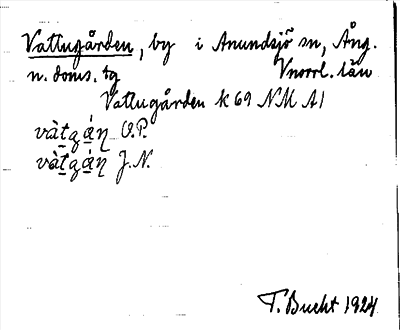 Vattugården, by i Anundsjö sn, Ång.
n. doms. tg Vnorrl. län
Vattugården k 69 NM A1
vàt̲gá̲ṇ O.P.
vàt̲gá̲ṇ J.N.
T. Bucht 1924